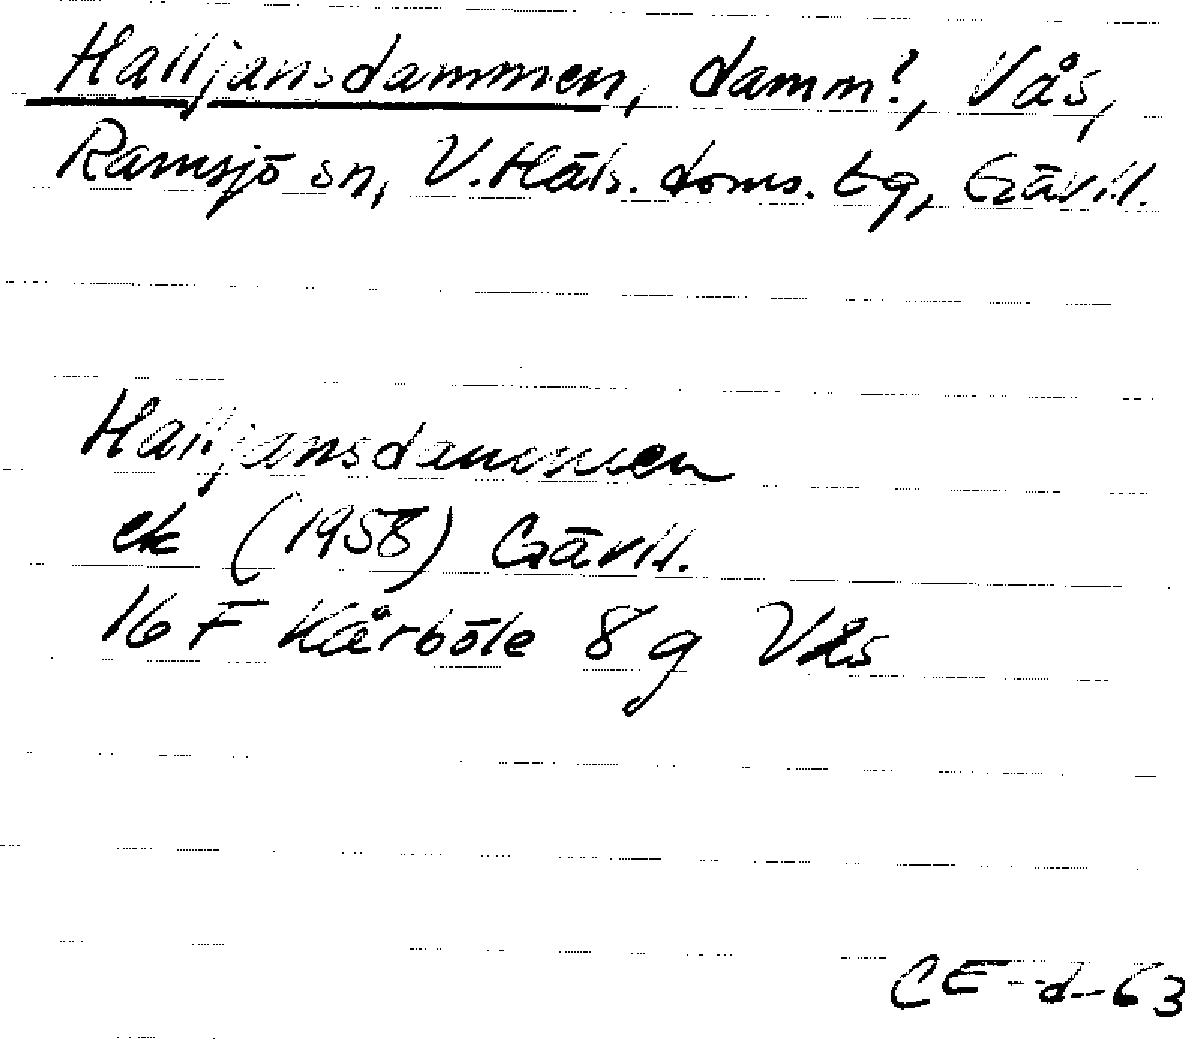 Halljansdammen, damm?, Vås,
Ramsjö sn, V. Häls. doms. tg, Gävll.
Halljansdammen
ek (1958) Gävll.
16 F Kårböle 8 g Vås
CE-d-63